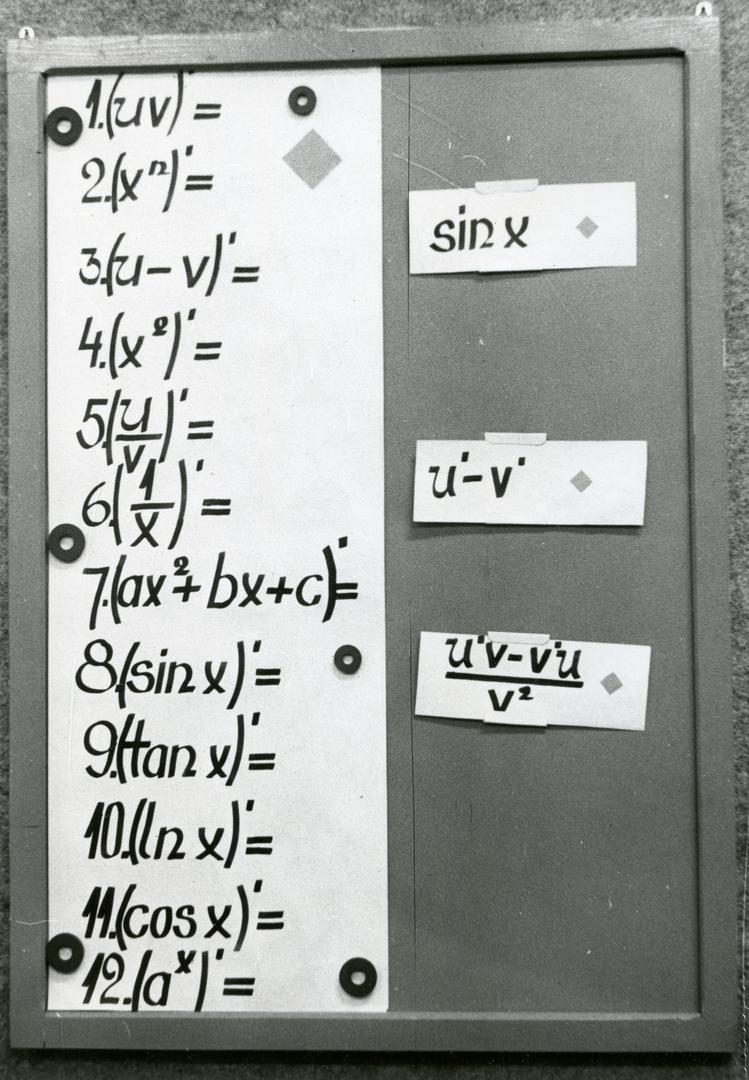 1.(uv)'=
2.(xⁿ)'=
3.(u-v)'=
4.(x²)'=
5.(u/v)'=
6.(1/x)'=
7.(ax²+bx+c)'=
8.(sin x)'=
9.(tan x)'=
10.(ln x)'=
11.(cos x)'=
12.(aˣ)'=
sin x
u'-v'
u'v-v'u
v²